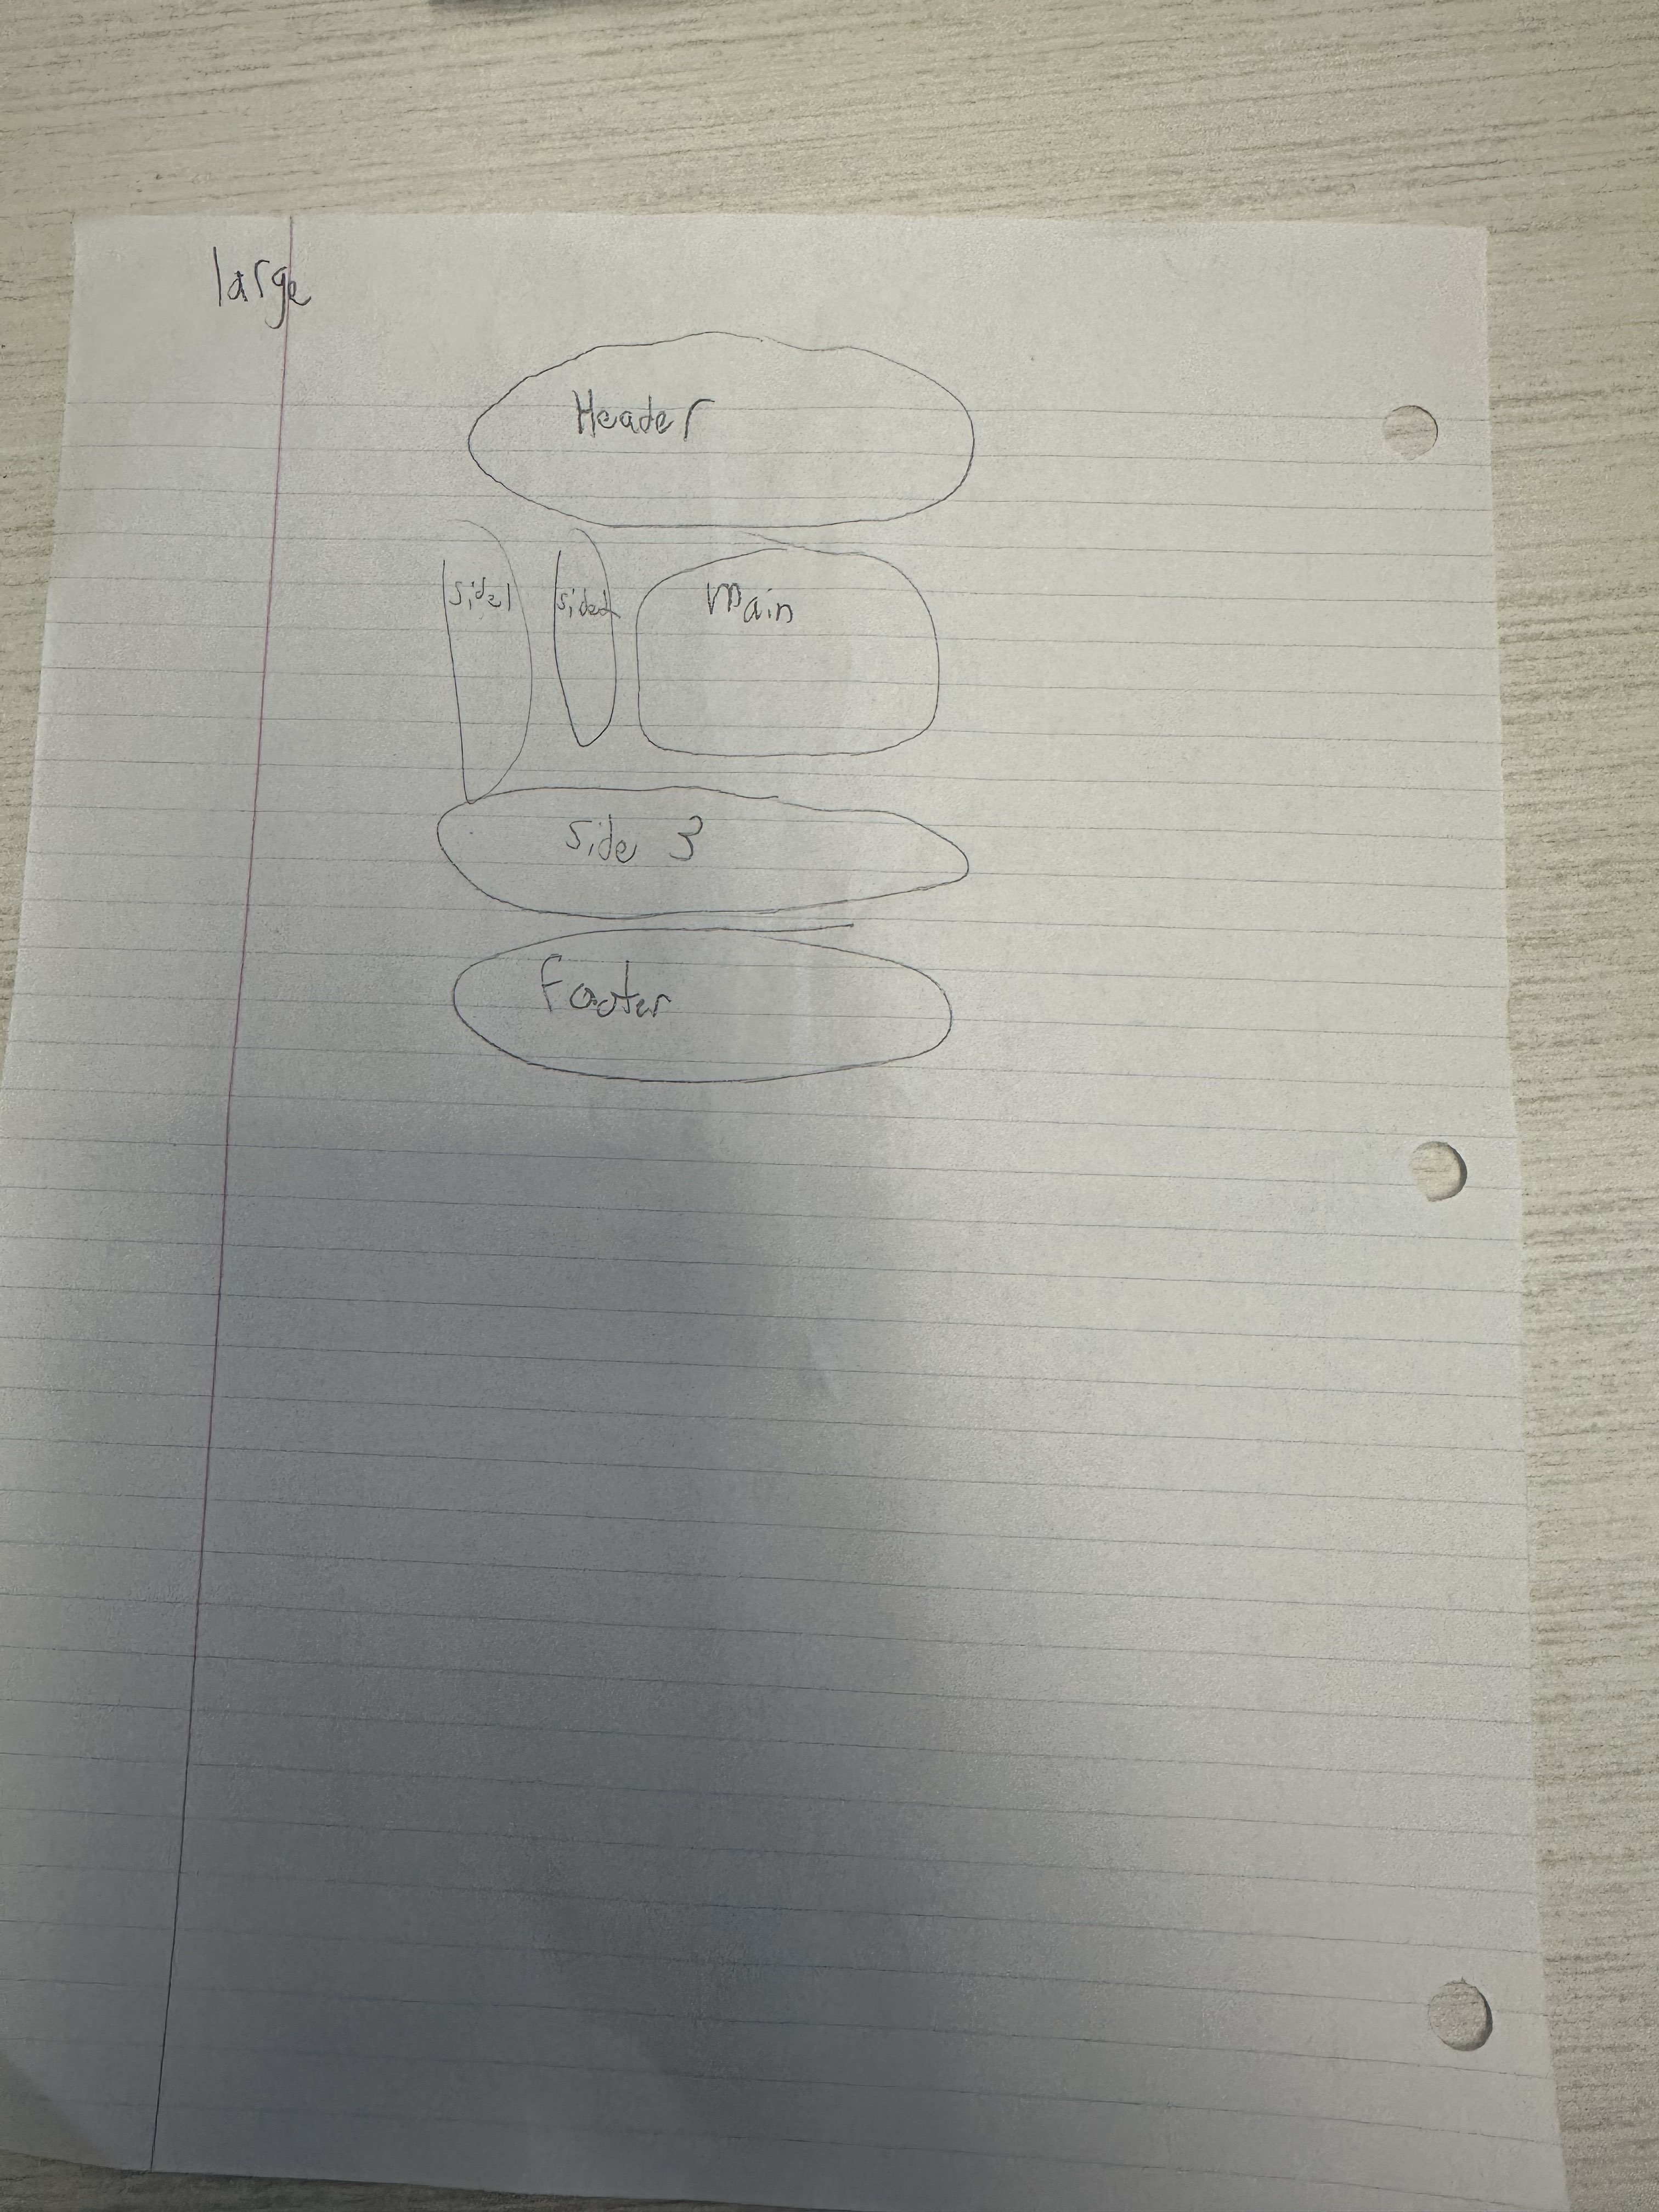 large
Header
side1 side2 Main
Side 3
Footer